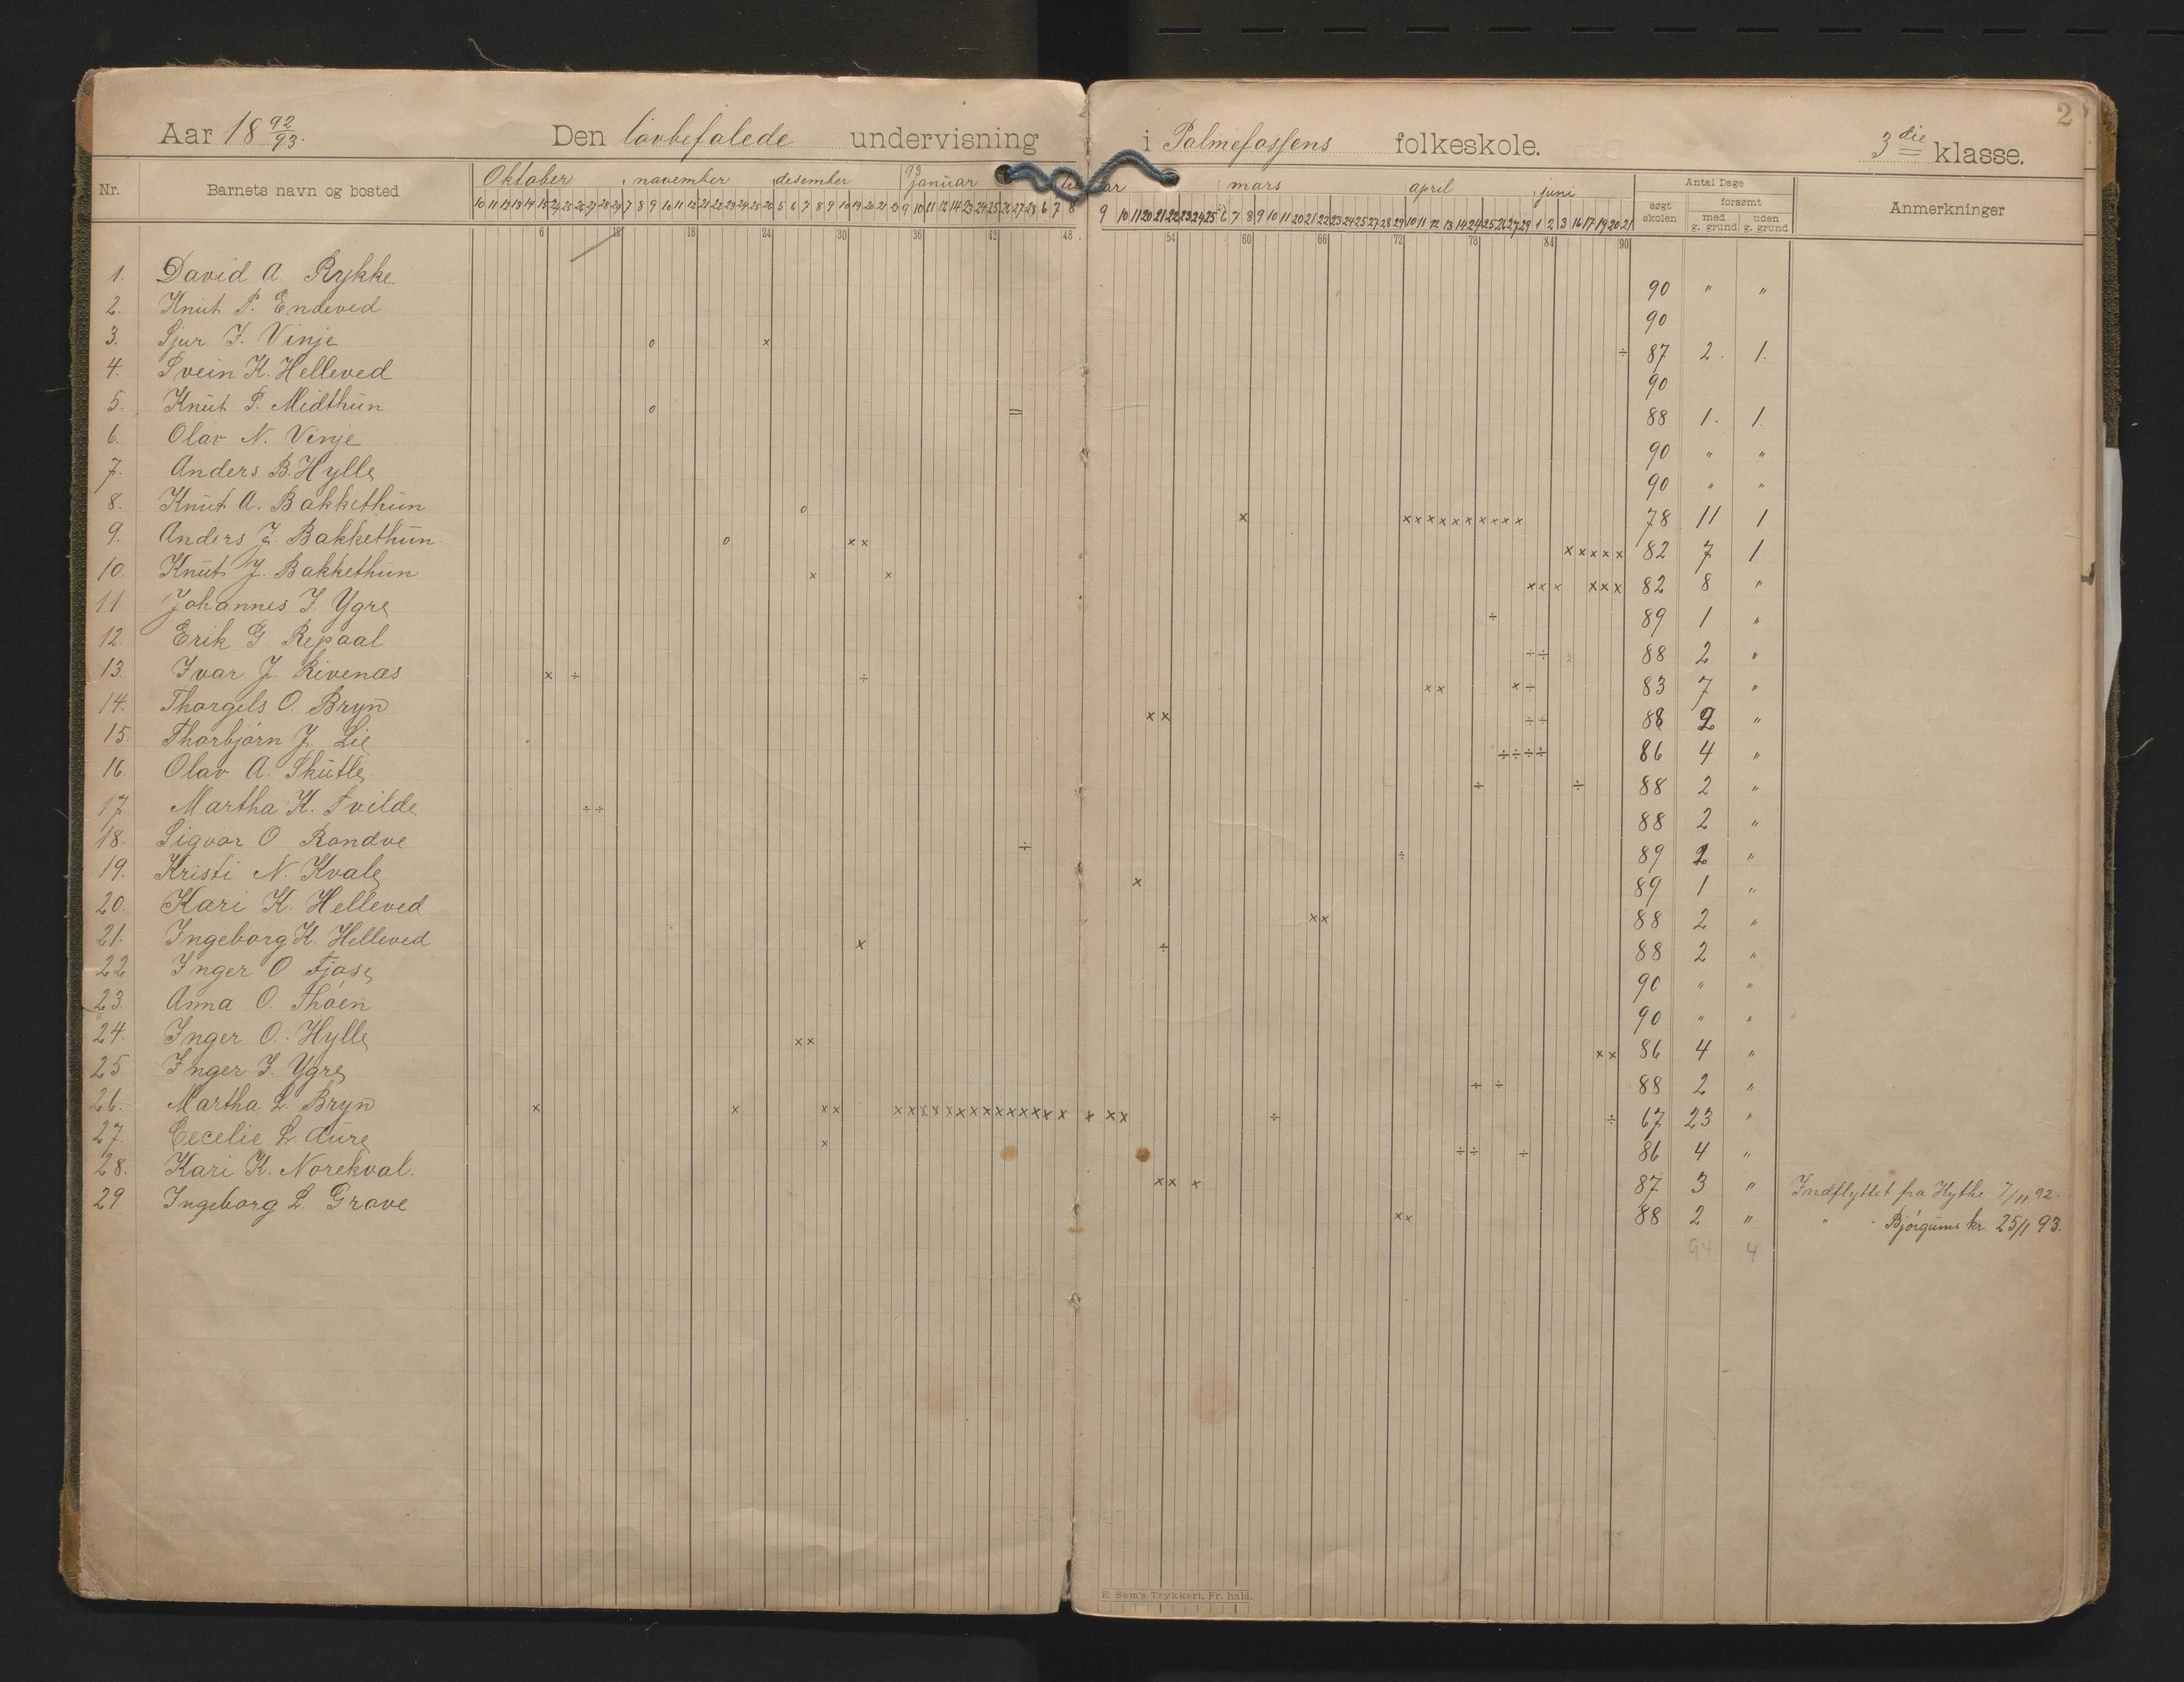 2
Aar 18 92/93. Den lovbefalede undervisning i Palmefossens folkeskole. 3die klasse.
Nr. Barnets navn og bosted Oktober november desember 93 januar mars april juni Antal Dage Anmerkninger
søgt skolen forsømt
med g. grund uden g. grund
6 12 18 24 30 36 42 48 54 60 66 72 78 84 90
1. David A. Rykke 90 " "
2. Knut P. Endeved 90
3. Sjur I. Vinje o x ÷ 87 2. 1.
4. Svein K. Helleved 90
5. Knut S. Midthun o = 88 1. 1.
6. Olav N. Vinje 90 " "
7. Anders B. Hylle 90 " "
8. Knut A. Bakkethun o x x x x x x x x x x x 78 11 1
9. Anders J. Bakkethun o x x x x x x x 82 7 1
10. Knut J. Bakkethun x x x x x x x x 82 8 "
11 Johannes I. Ygre ÷ 89 1 "
12. Erik G Repaal ÷ ÷ 88 2 "
13. Ivar J. Rivenæs x ÷ ÷ x x x ÷ 83 7 "
14. Thorgils O. Bryn x x ÷ ÷ 88 2 "
15. Thorbjørn J. Lie ÷ ÷ ÷ ÷ 86 4 "
16. Olav A. Skutle ÷ ÷ 88 2 "
17. Martha K. Tvilde ÷ ÷ 88 2 "
18. Sigvar O Rondve ÷ ÷ 89 2 "
19. Kristi N. Kvale x 89 1 "
20. Kari K. Helleved x x 88 2 "
21. Ingeborg K. Helleved x ÷ 88 2 "
22 Inger O Tjose 90 " "
23. Anna O. Thoen 90 " "
24. Inger O. Hylle x x x x 86 4 "
25 Inger I. Ygre ÷ ÷ 88 2 "
26. Martha L. Bryn x x x x x x x x x x x x x x x x x x x x x ÷ ÷ 67 23 "
27. Cecelie L. Dure x ÷ ÷ ÷ 86 4 "
28. Kari K. Norekval. x x x 87 3 " Indflyttet fra Hythe 7/11 92.
29 Ingeborg L. Grove x x 88 2 " " " Bjørgums kr. 25/1 93.
94 4
E. Sem's Trykkeri, Fr. hald.